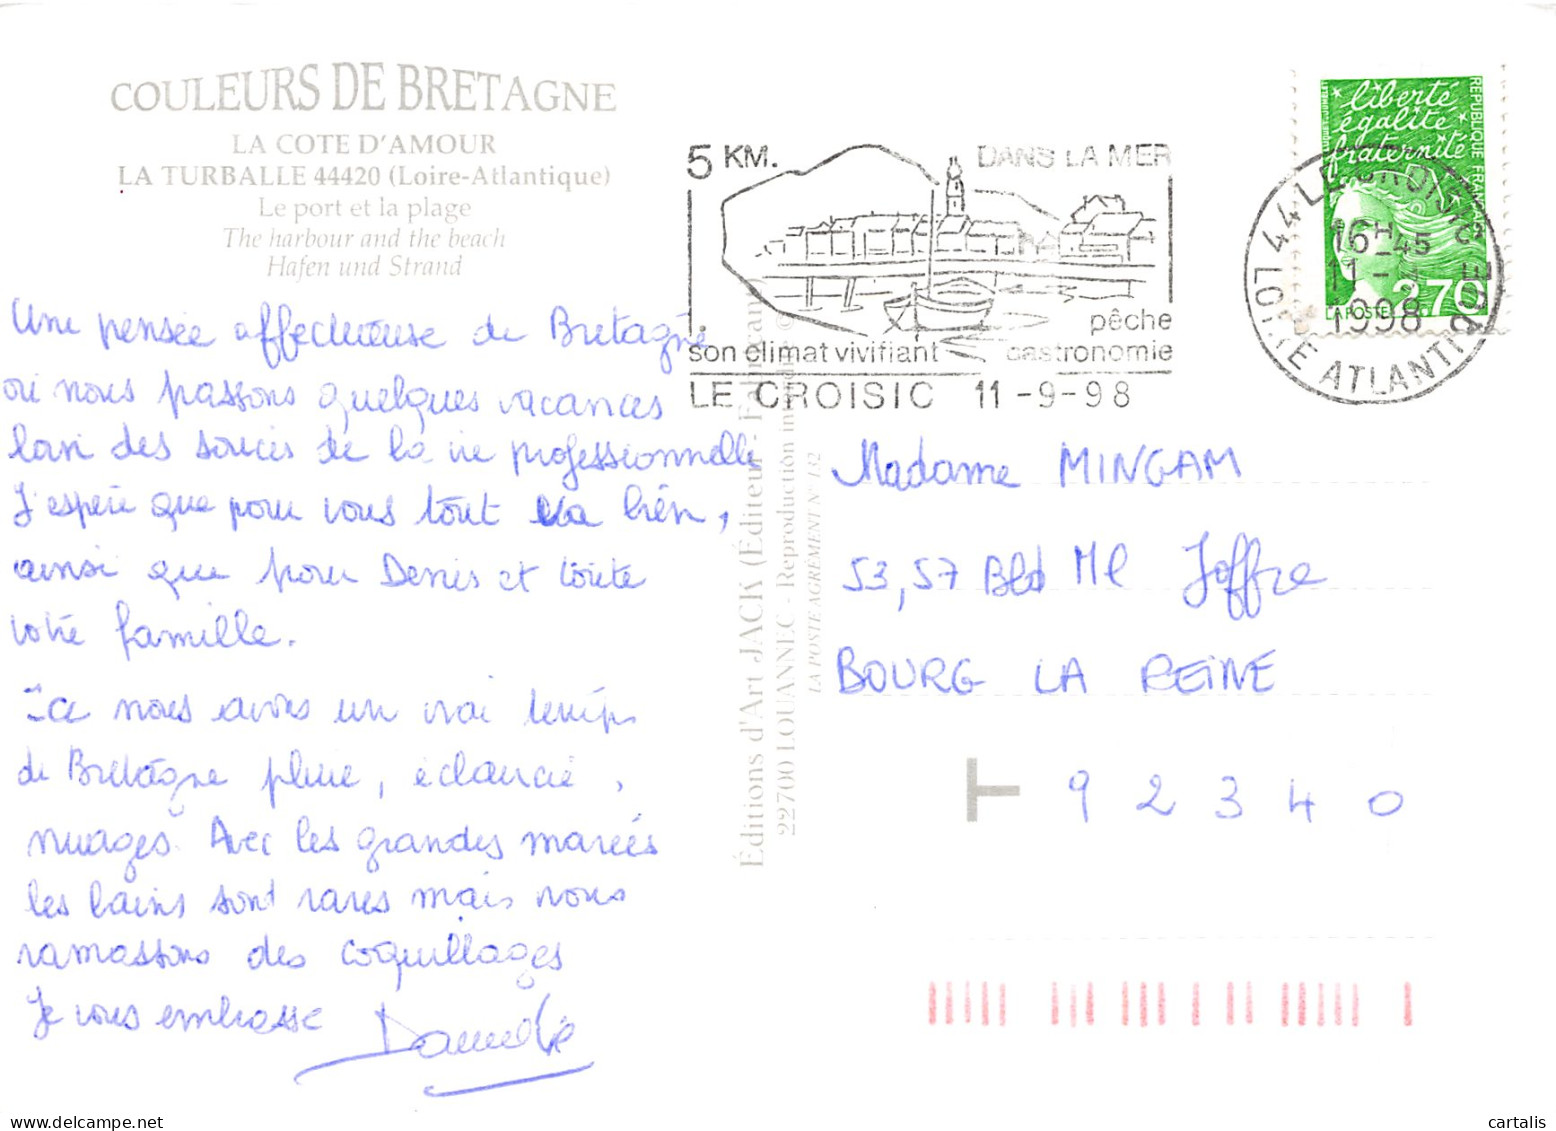 COULEURS DE BRETAGNE
LA COTE D'AMOUR
LA TURBALLE 44420 (Loire-Atlantique)
Le port et la plage
The harbour and the beach
Hafen und Strand
Une pensée affectueuse de Bretagne
où nous passons quelques vacances
loin des soucis de la vie professionnelle
J'espère que pour vous tout va bien,
ainsi que pour Denis et toute
votre famille.
Ici nous avons un vrai temps
de Bretagne pluie, éclaircie,
nuages. Avec les grandes marées
les bains sont rares mais nous
ramassons des coquillages
Je vous embrasse
Danielle
5 KM. DANS LA MER
pêche
son climat vivifiant gastronomie
LE CROISIC 11-9-98
liberté
égalité
fraternité
REPUBLIQUE FRANÇAISE
LA POSTE 2,70
44 LE CROISIC
16H45
11-9
1998
LOIRE ATLANTIQUE
Éditions d'Art JACK (Éditeur - Fabricant)
22700 LOUANNEC - Reproduction interdite ©
LA POSTE AGRÉMENT N° 132
Madame MINGAM
53,57 Bld Ml Joffre
BOURG LA REINE
T 92340
cartalis